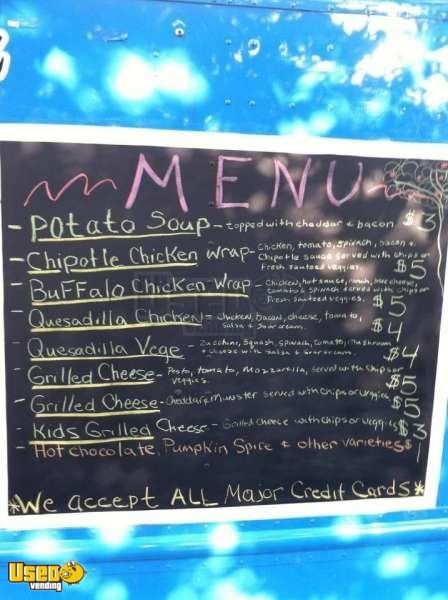 MENU
- Potato Soup - topped with cheddar & bacon $3
- Chipotle Chicken Wrap - Chicken, tomato, spinach, bacon &
Chipotle sauce served with chips or
Fresh sauteed veggies. $5
- Buffalo Chicken Wrap - Chicken, hot sauce, ranch, blue cheese,
tomato & spinach served with chips or
Fresh sauteed veggies. $5
- Quesadilla Chicken - Chicken, bacon, cheese, tomato,
Salsa & Sour cream. $4
- Quesadilla Vege - Zucchini, Squash, spinach, tomato, mushroom
& cheese with Salsa & Sour cream. $4
- Grilled Cheese - Pesto, tomato, mozzarella, served with chips or
veggies. $5
- Grilled Cheese - cheddar & Munster served with chips or veggies $5
- Kids Grilled Cheese - Grilled cheese with chips or veggies $3
- Hot chocolate, Pumpkin Spice & other varieties $1
*We accept ALL Major Credit Cards*
USED
vending